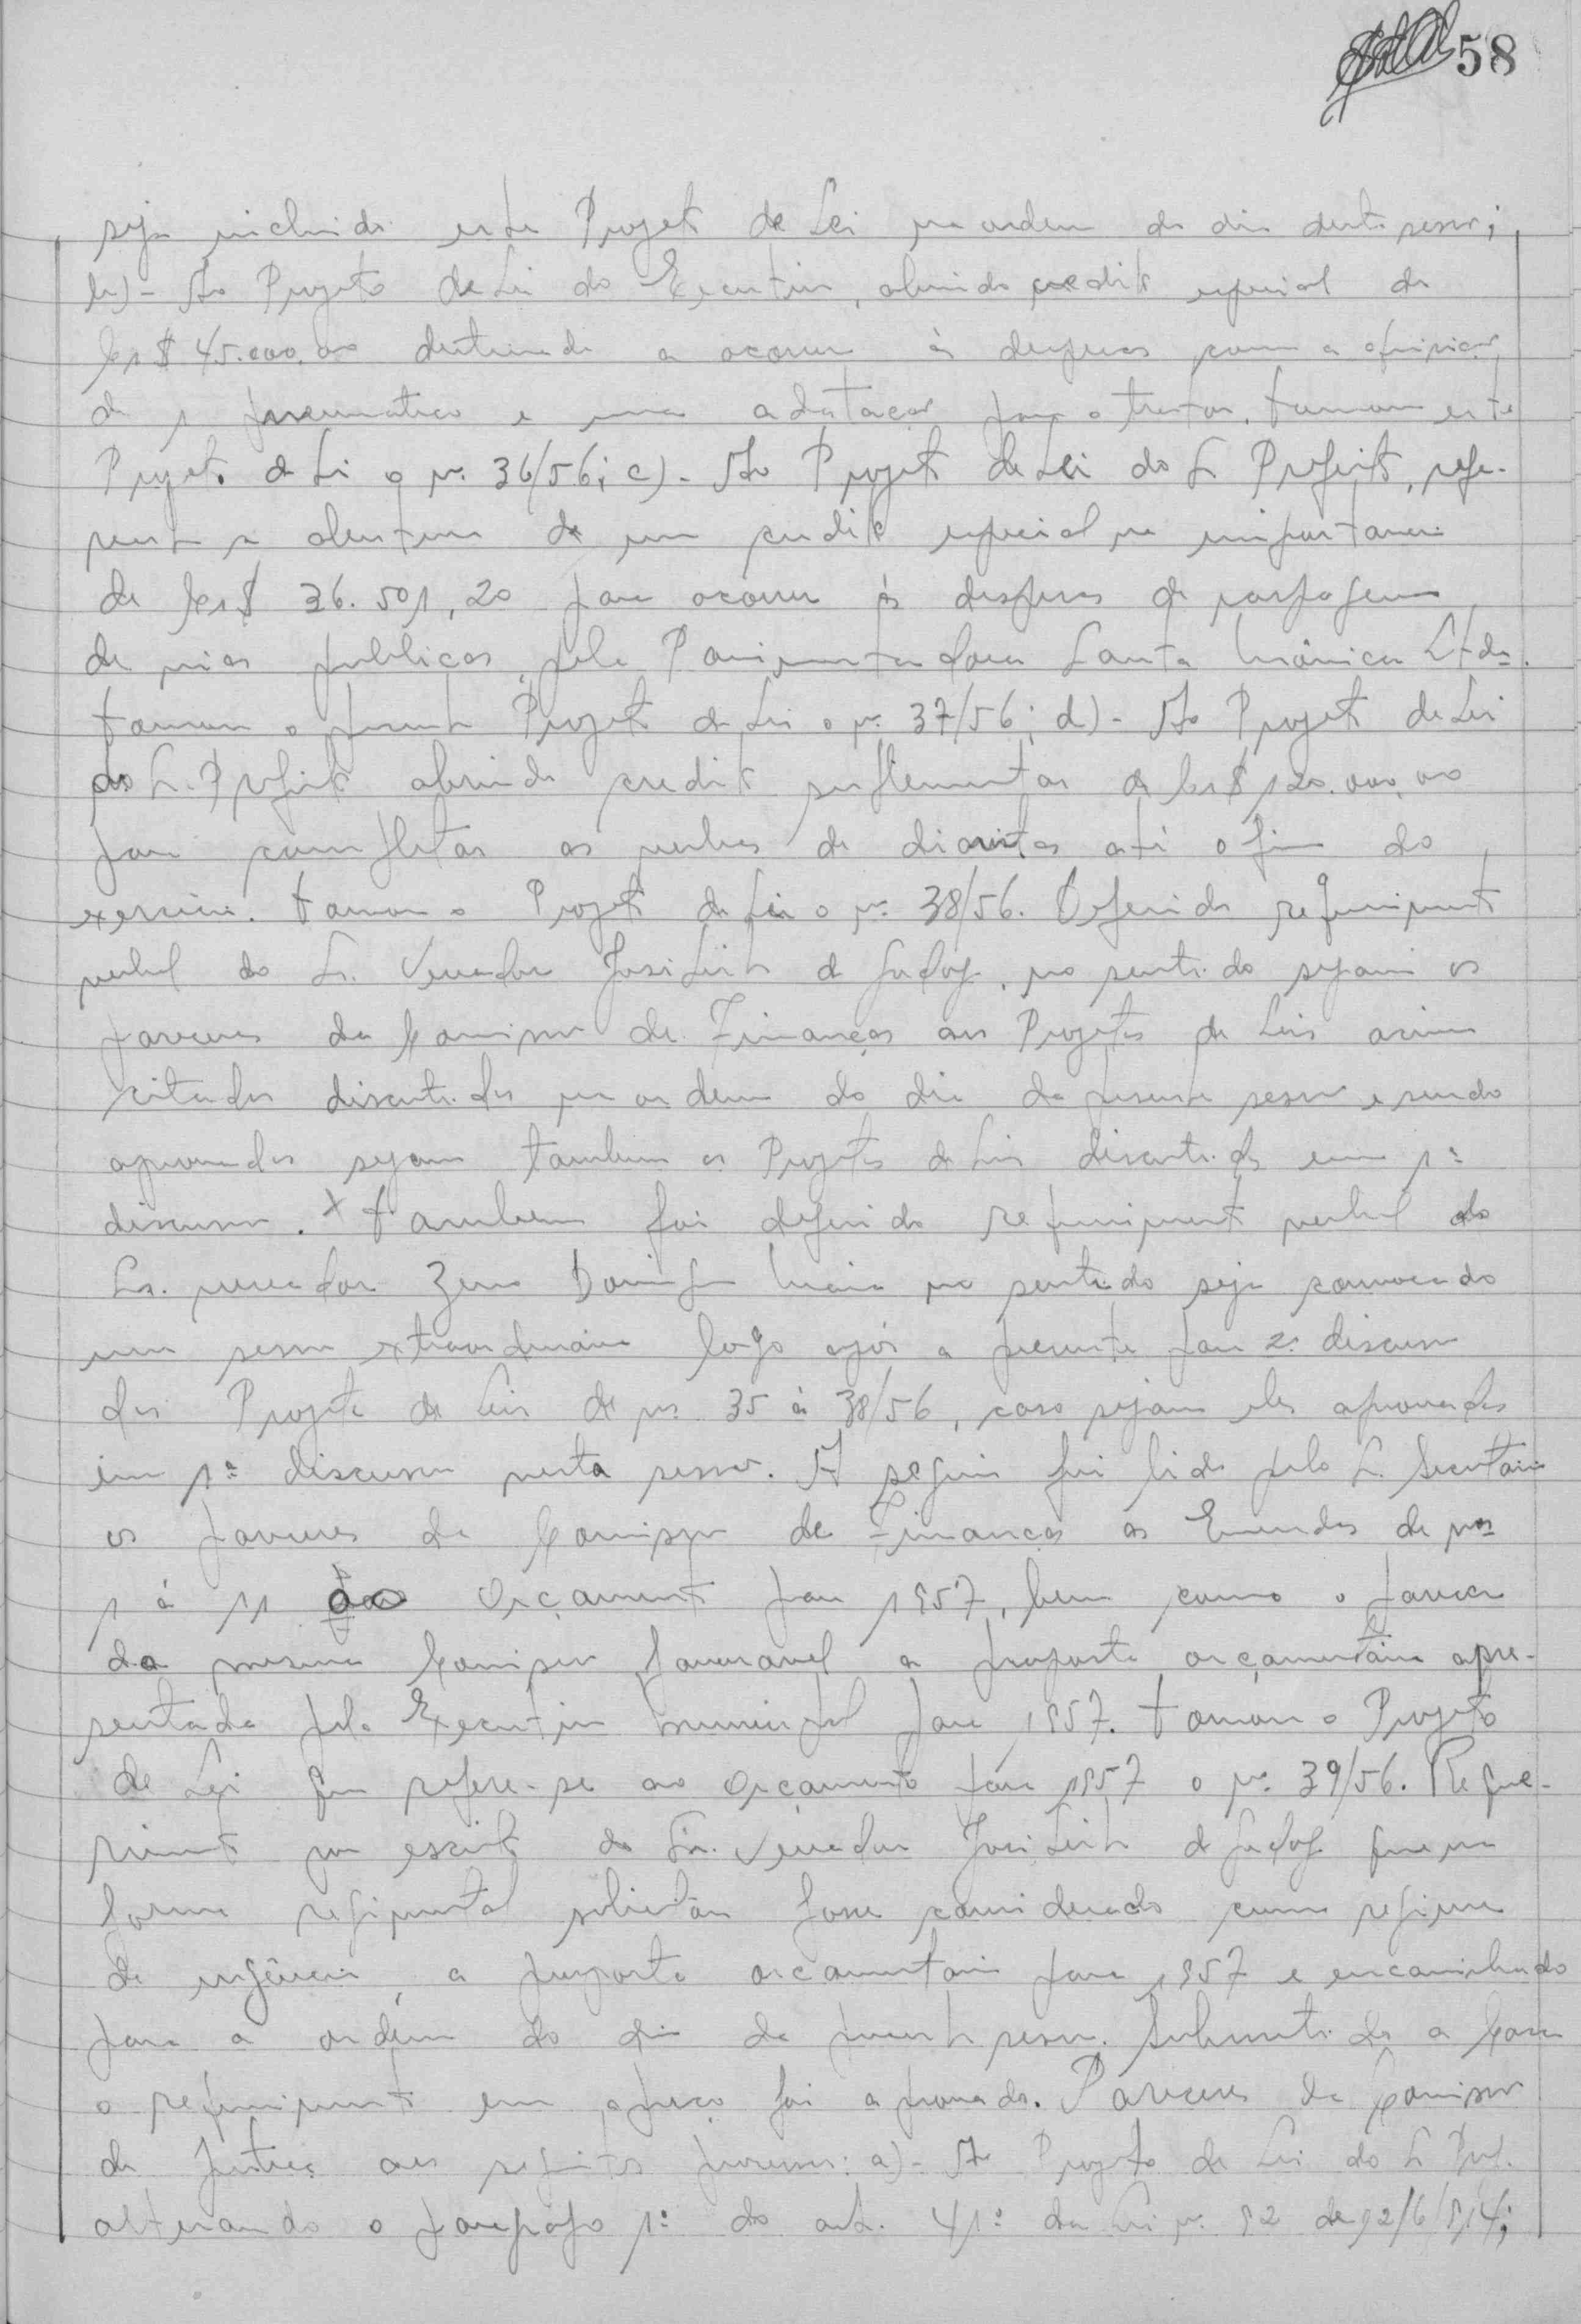 58
seja incluido este Projeto de Lei na ordem do dia desta sessão;
b)- Ao Projeto de Lei do Executivo, abrindo credito especial de
Cr$ 45.000,00 destinado a ocorrer ás despesas com a aquisição
de 1 pneumatico e uma adatação para o trator. Tomou este
Projeto de Lei o nº 36/56; c)- Ao Projeto de Lei do Sr. Prefeito, refe-
rente a abertura de um credito especial na importancia
de Cr$ 36.501,20 para ocorrer ás despesas de
de vias publicas, pela Pavimentadora Santa Mônica Ltda.
Tomou o presente Projeto de Lei o nº 37/56; d)- Ao Projeto de Lei
do Sr. Prefeito abrindo credito suplementar de Cr$ 120.000,00
para completar as verbas de diaristas até o fim do
exercicio. Tomou o Projeto de Lei o nº 38/56. Deferido requerimento
verbal do Sr. Vereador José Leite de Godoy, no sentido sejam os
pareceres da Comissão de Finanças aos Projetos de Leis acima
citados discutidos na ordem do dia da presente sessão e sendo
aprovados sejam tambem os Projetos de Leis discutidos em 1ª
discussão. Tambem foi deferido requerimento verbal do
Sr. vereador Zeno Maia no sentido seja convocado
uma sessão extraordinária logo após a presente para 2ª discussão
dos Projetos de Leis de nº 35 á 38/56, caso sejam eles aprovados
em 1ª discussão nesta sessão. A seguir foi lido pelo Sr. Secretário
os pareceres da Comissão de Finanças as Emendas de nos
1 á 11 ao Orçamento para 1957, bem como o parecer
da mesma Comissão favoravel a proposta orçamentária apre-
sentada pelo Executivo Municipal para 1957. Tomou o Projeto
de Lei que refere-se ao Orçamento para 1957 o nº 39/56. Reque-
rimento por escrito do Sr. Vereador José Leite de Godoy que na
forma regimental solicitou fosse considerado como regime
de urgência, a proposta orçamentaria para 1957 e encaminhado
para a ordem do dia da presente sessão. Submetido a Casa
o requerimento em apreço foi aprovado. Pareceres da Comissão
de Justiça aos seguintes processos: a)- Ao Projeto de Lei do Sr. Pref.
alterando o paragrafo 1º do art. 41º da Lei nº 92 de